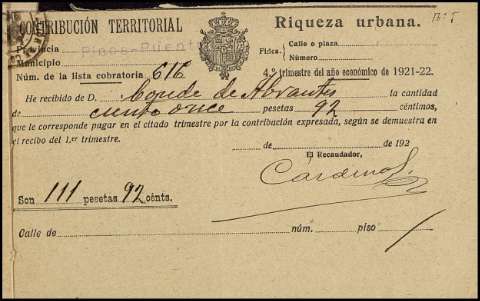 CONTRIBUCIÓN TERRITORIAL
Riqueza urbana.
Provincia
Pinos-Puente
Municipio
Núm. de la lista cobratoria 616
Finca.
Calle o plaza
Número
4.º trimestre del año económico de 1921-22.
He recibido de D. Conde de Abrantes la cantidad
de ciento once pesetas 92 céntimos,
que le corresponde pagar en el citado trimestre por la contribución expresada, según se demuestra
en el recibo del 1.er trimestre.
de de 192
El Recaudador,
Cárdenas
Son 111 pesetas 92 cénts.
Calle de núm. piso